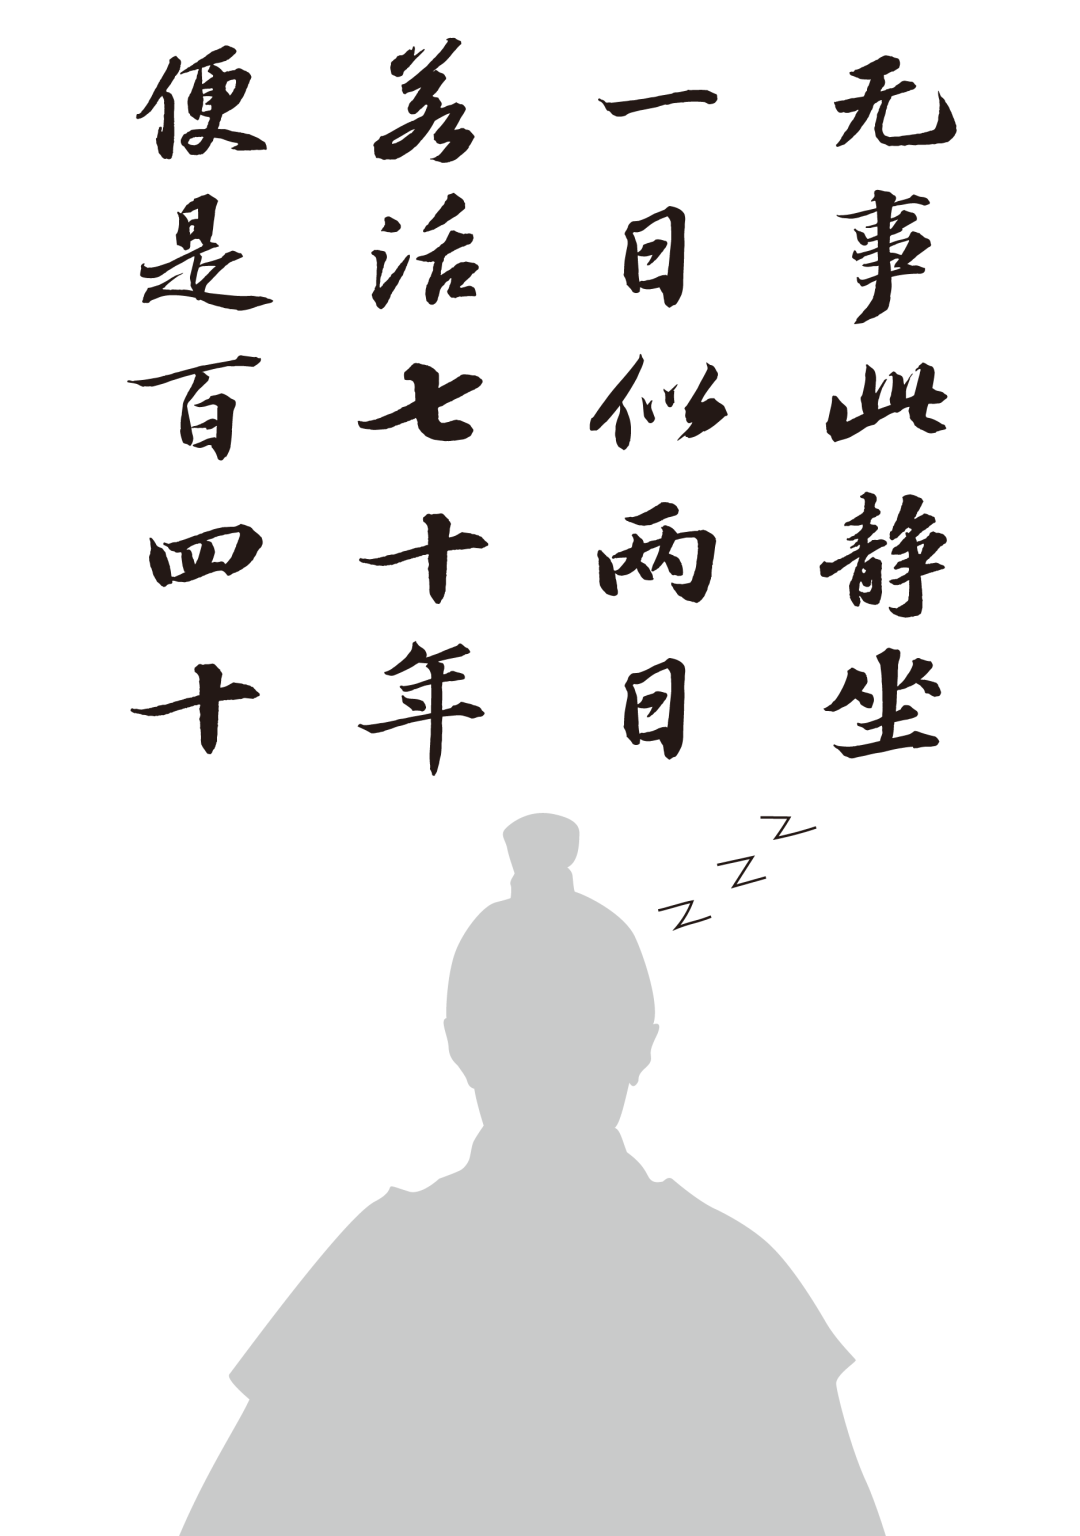 无事此静坐
一日似两日
若活七十年
便是百四十
z z z